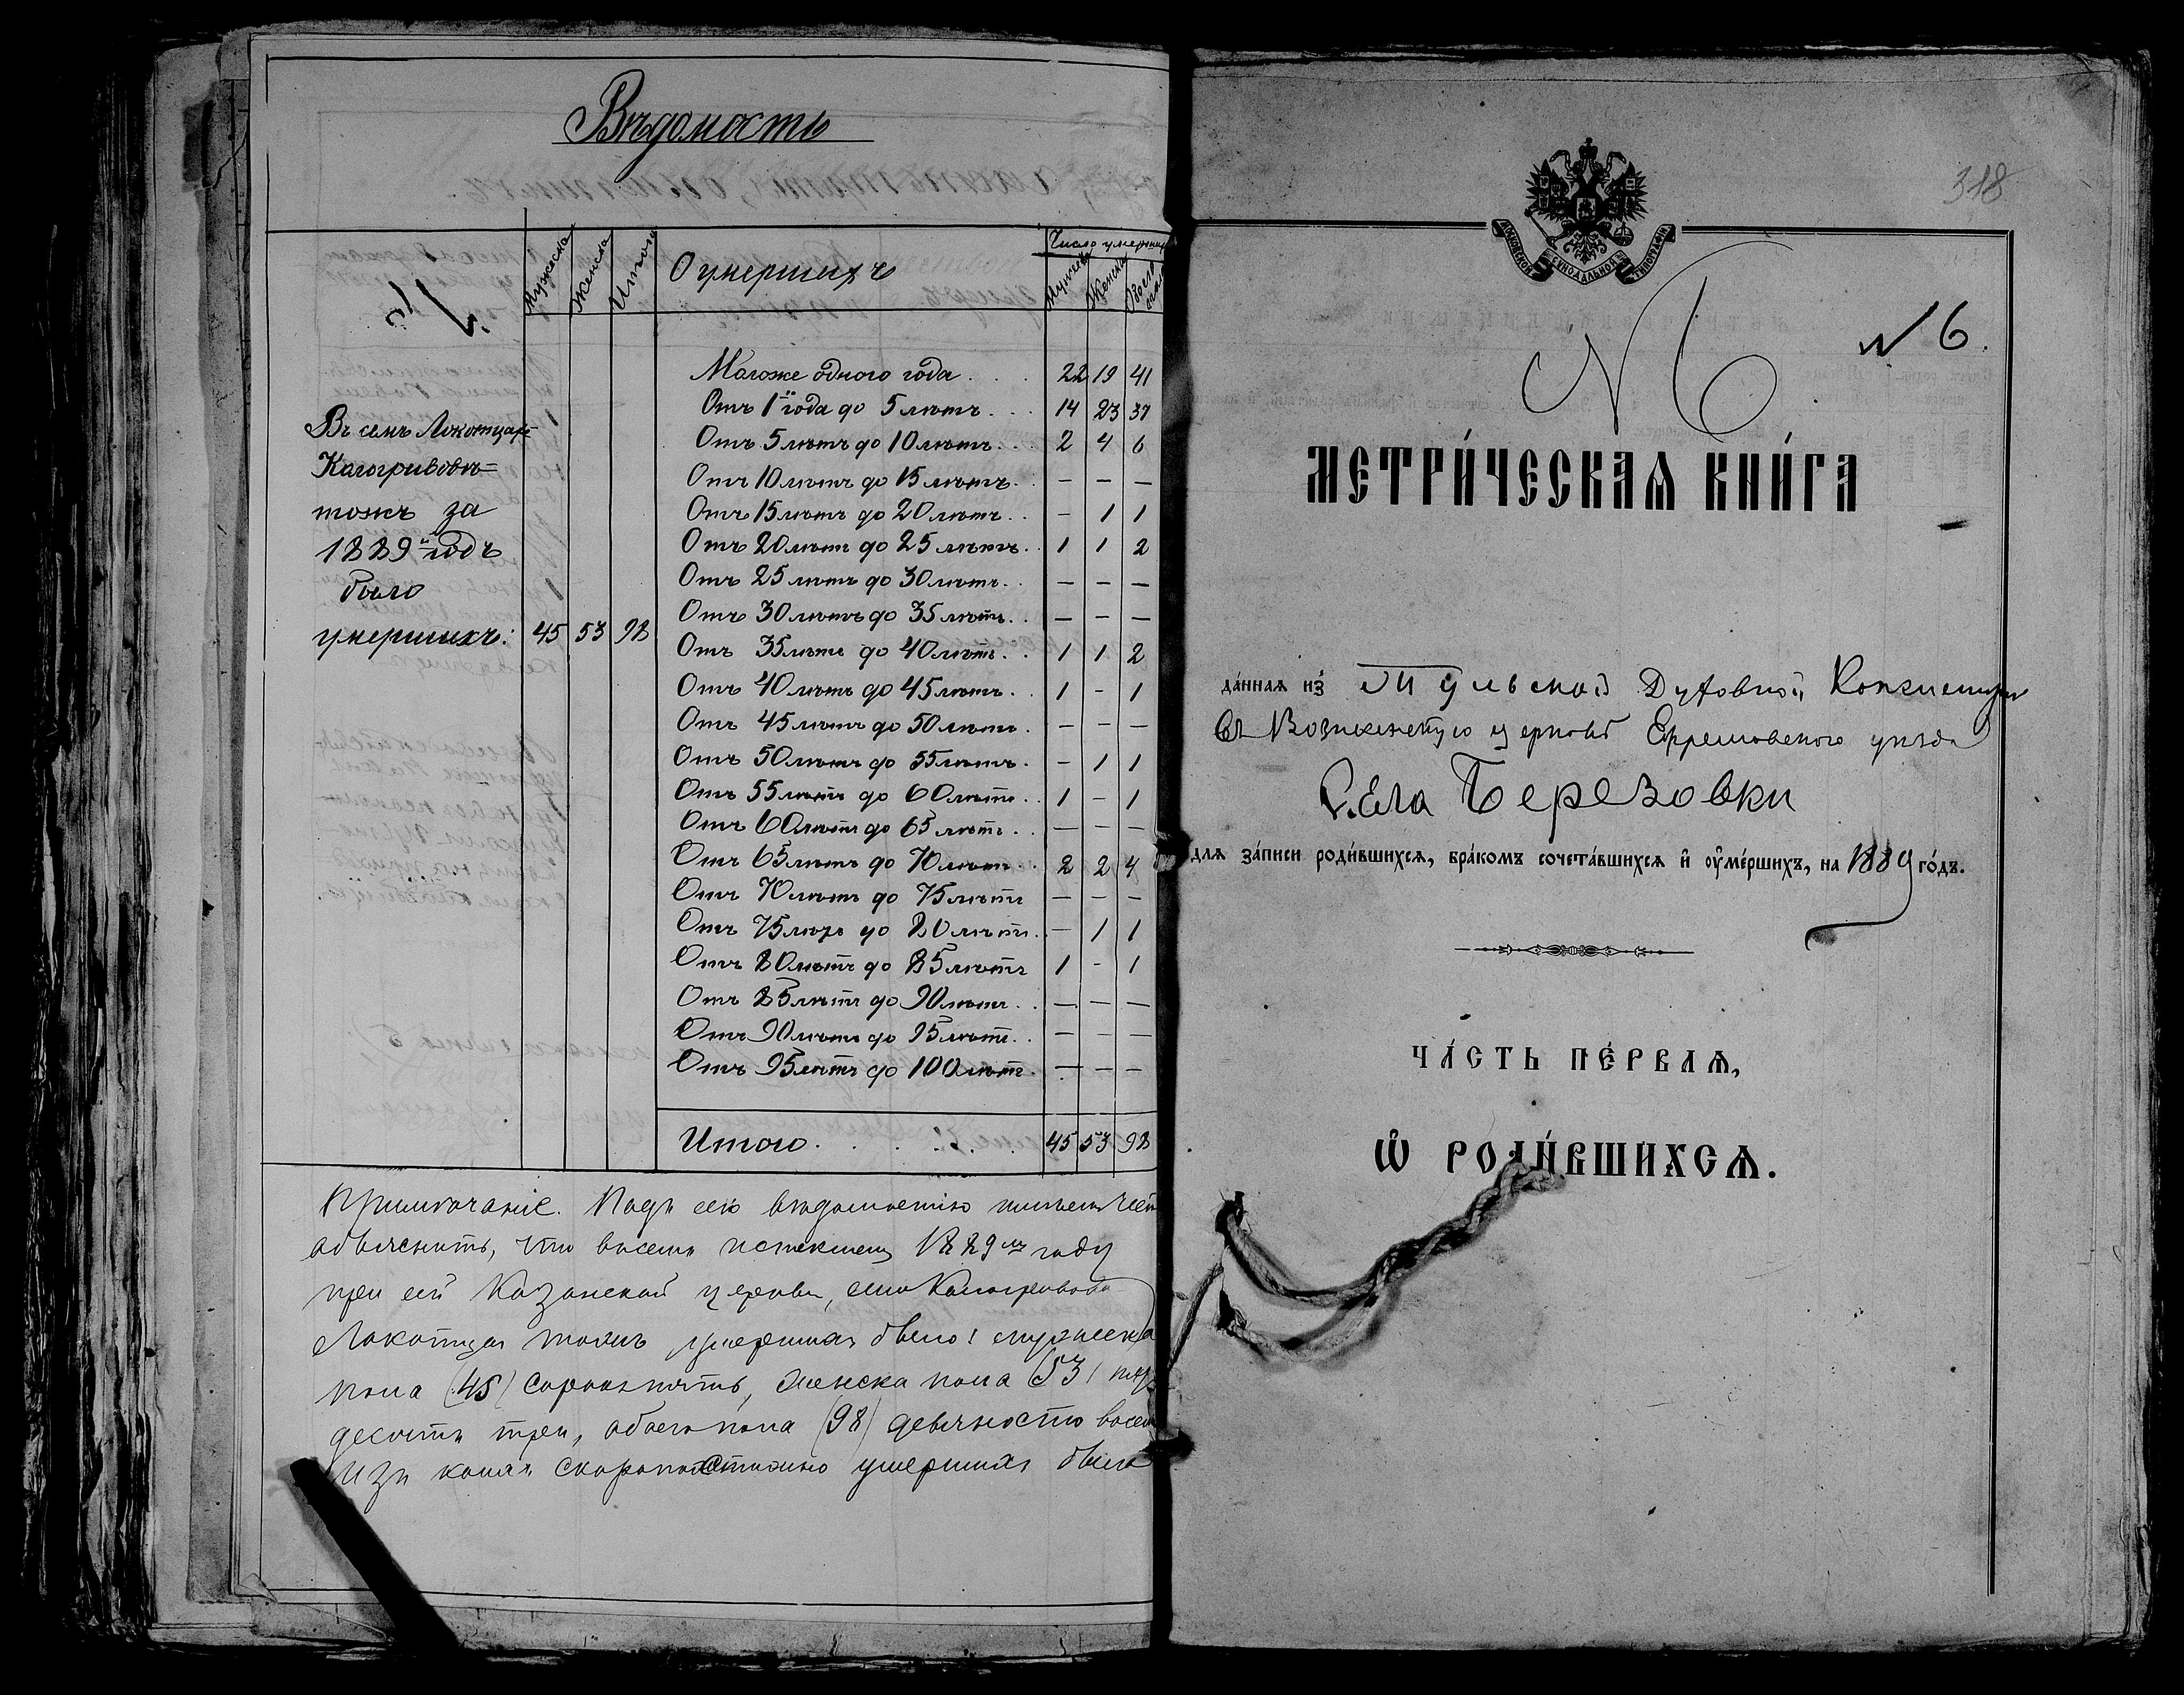 Вѣдомость
Мужеска Женска Итого О умершихъ Число умершихъ
Мужеска Женска Всего
Моложе одного года . . . 22 19 41
Отъ 1го года до 5 лѣтъ . . . 14 23 37
Въ селѣ Локотцахъ
Отъ 5 лѣтъ до 10 лѣтъ . . . 2 4 6
Кологривовѣ=
Отъ 10 лѣтъ до 15 лѣтъ . . — — —
тожъ за
Отъ 15 лѣтъ до 20 лѣтъ . . — 1 1
1889й годъ
Отъ 20 лѣтъ до 25 лѣтъ . . 1 1 2
было
Отъ 25 лѣтъ до 30 лѣтъ . . — — —
Отъ 30 лѣтъ до 35 лѣтъ . . — — —
умершихъ: 45 53 98
Отъ 35 лѣтъ до 40 лѣтъ . . 1 1 2
Отъ 40 лѣтъ до 45 лѣтъ . . 1 - 1
Отъ 45 лѣтъ до 50 лѣтъ . — — —
Отъ 50 лѣтъ до 55 лѣтъ . — 1 1
Отъ 55 лѣтъ до 60 лѣтъ . . 1 — 1
Отъ 60 лѣтъ до 65 лѣтъ . . — — —
Отъ 65 лѣтъ до 70 лѣтъ . . 2 2 4
Отъ 70 лѣтъ до 75 лѣтъ — — —
Отъ 75 лѣтъ до 80 лѣтъ . — 1 1
Отъ 80 лѣтъ до 85 лѣтъ 1 - 1
Отъ 85 лѣтъ до 90 лѣтъ . . — — —
Отъ 90 лѣтъ до 95 лѣтъ . . — — —
Отъ 95 лѣтъ до 100 лѣтъ . — — —
Итого . . . . . . 45 53 98
Примѣчаніе. Подъ сею вѣдомостію имѣемъ честь
объяснить, что въ семъ истекшемъ 1889мъ году
при сей Казанской церкви, села Кологривова
Локотцы тожъ умершихъ было: мужеска
пола (45) сорокъ пять, женска пола (53) пять
десятъ три, обоего пола (98) девяносто восемь
Изъ коихъ скоропостижно умершихъ было
318
МОСКОВСКОЙ СѴНОДАЛЬНОЙ ТИПОГРАФІИ
№ 6
№ 6.
МЕТРИ́ЧЕСКАѦ КНИ́ГА
да́ннаѧ из̾ Тульской Духовной Консисторіи
въ Вознесенскую церковь Ефремовскаго уѣзда
Села Березовки
для за́писи роди́вшихсѧ, бра́комъ сочета́вшихсѧ и҆ ᲂу҆ме́ршихъ, на 1889 го́дъ.
ЧА́СТЬ ПЕ́РВАѦ,
Ѽ РОДИ́ВШИХСѦ.